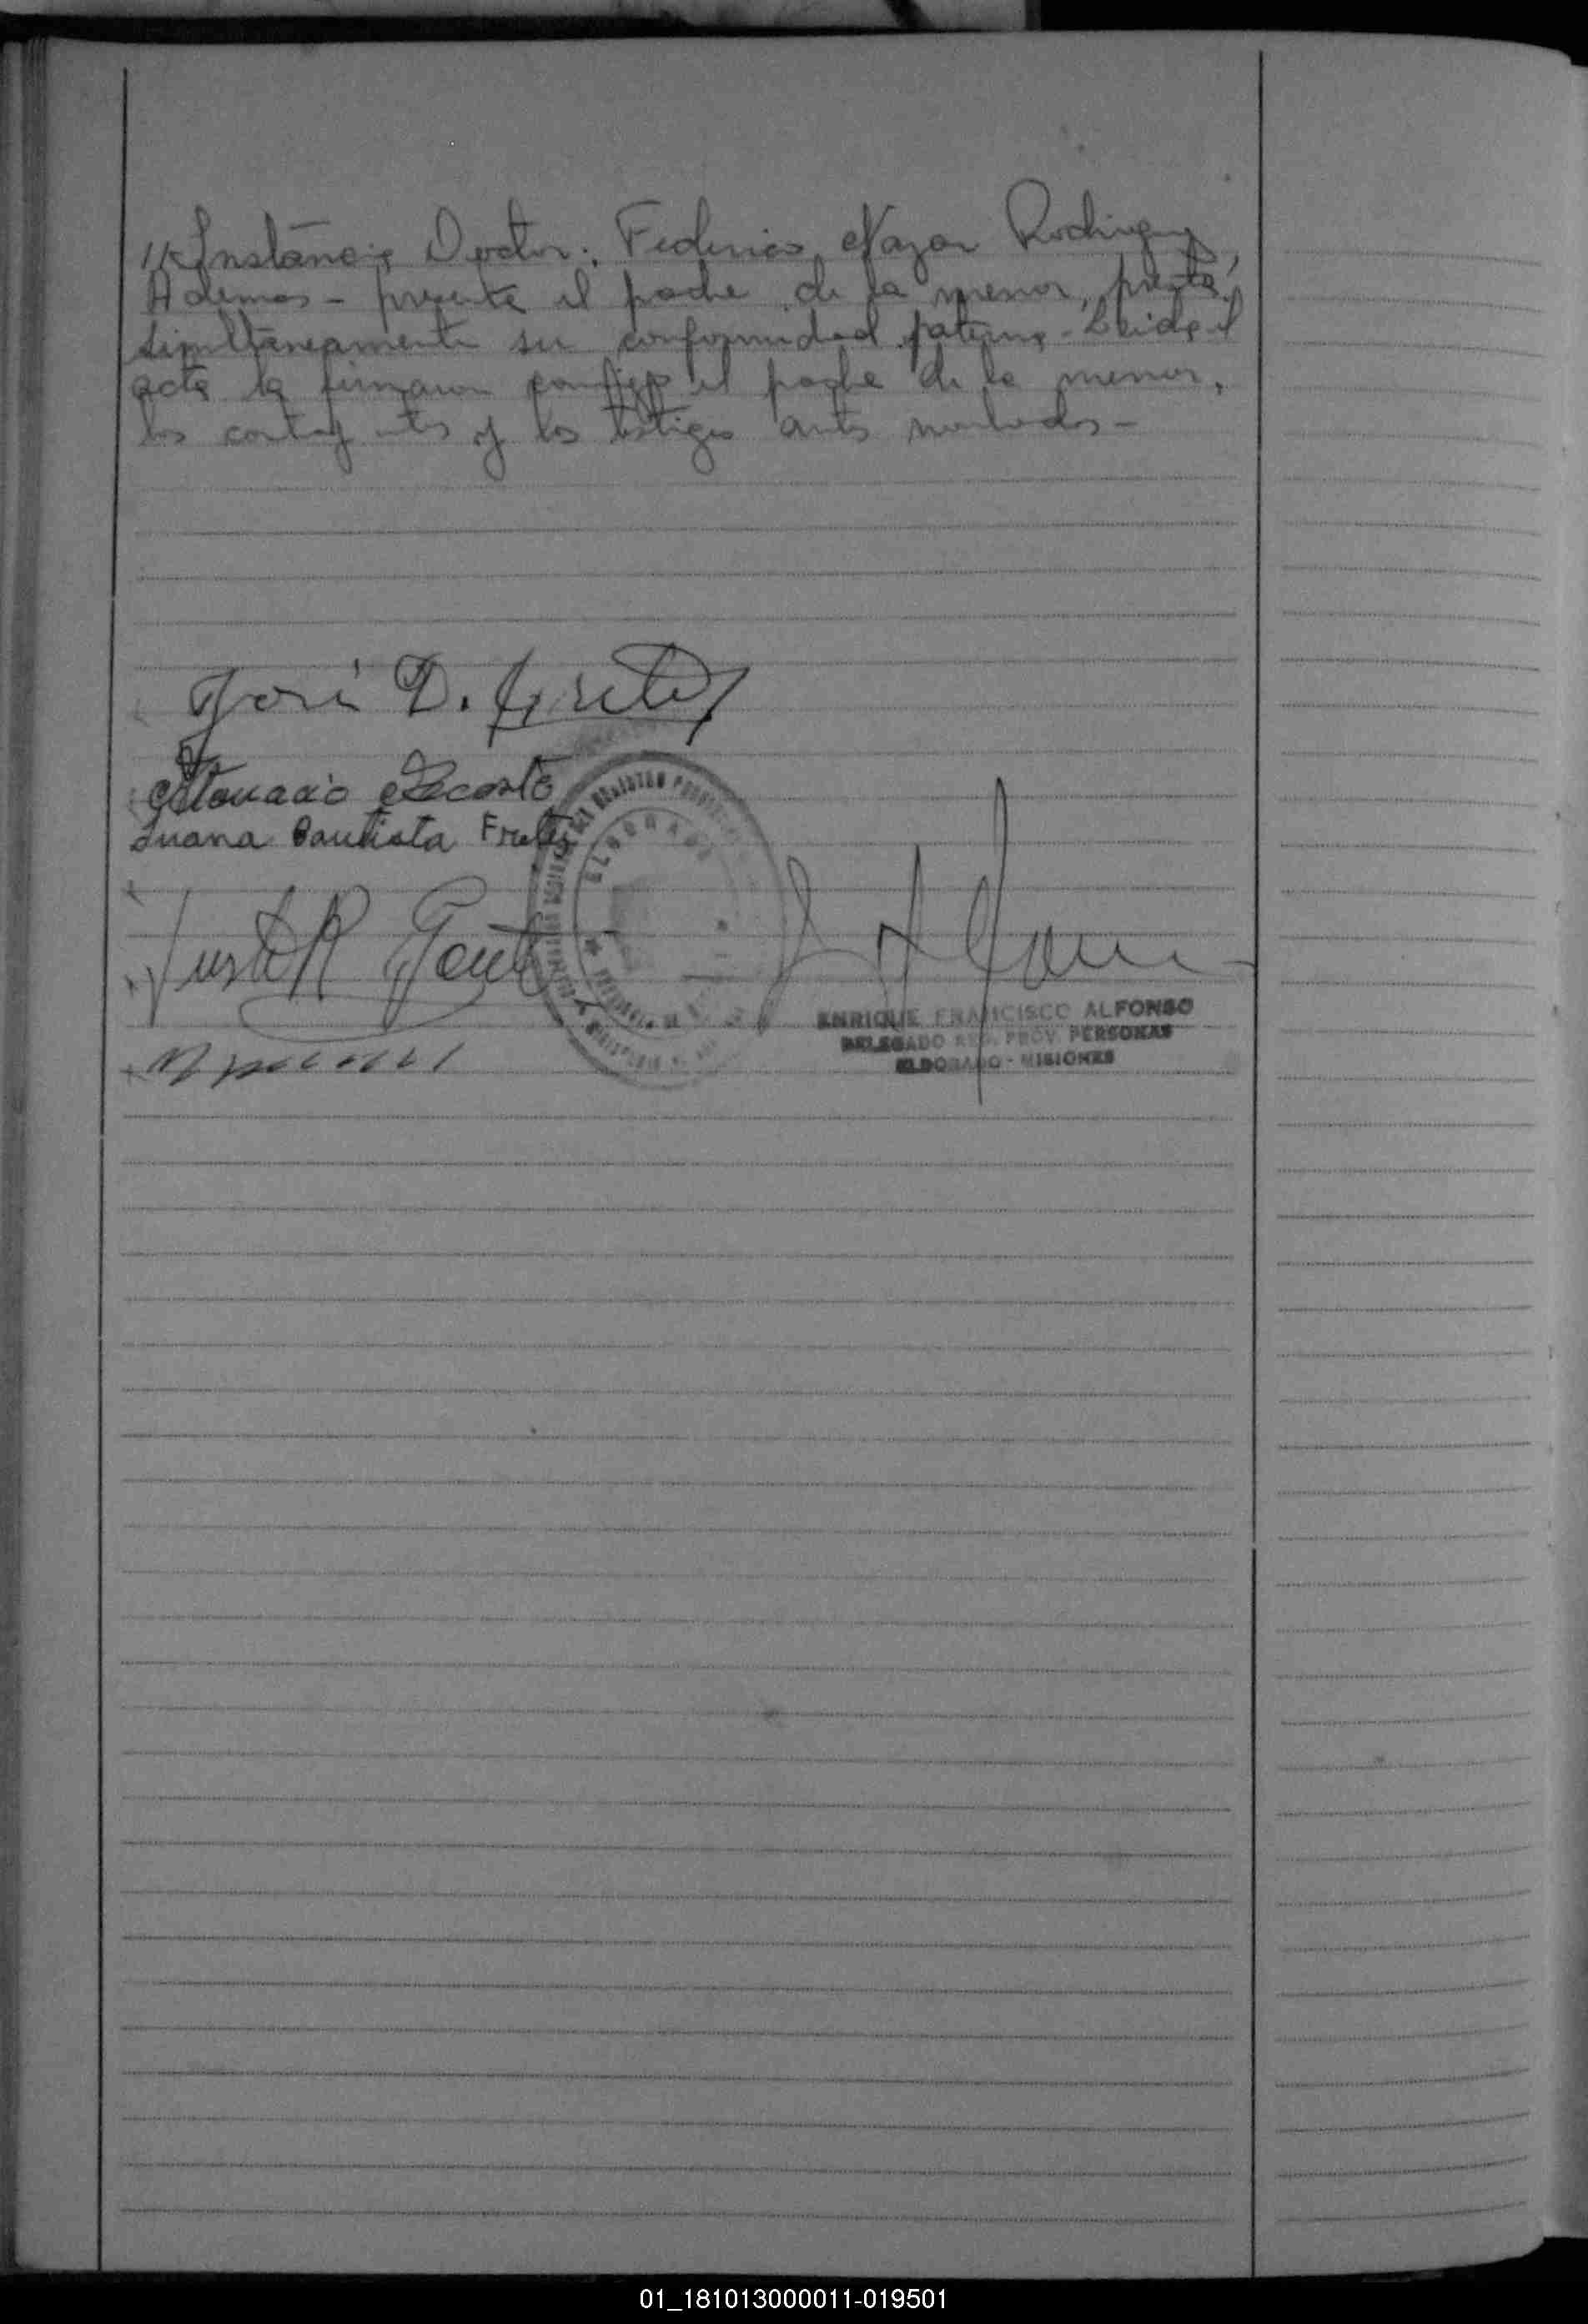 //Instancia Doctor: Federico Nazar Rodriguez,
Ademas - presente el padre de la menor, presta
simultaneamente su conformidad paterna - Leida el
acta la firmaron conmigo el padre de la menor,
los contrayentes y los testigos antes nombrados -
José D. Fretes
Juana Bautista Fretes
ELDORADO
ENRIQUE FRANCISCO ALFONSO
DELEGADO REG. PROV. PERSONAS
ELDORADO - MISIONES
01_181013000011-019501